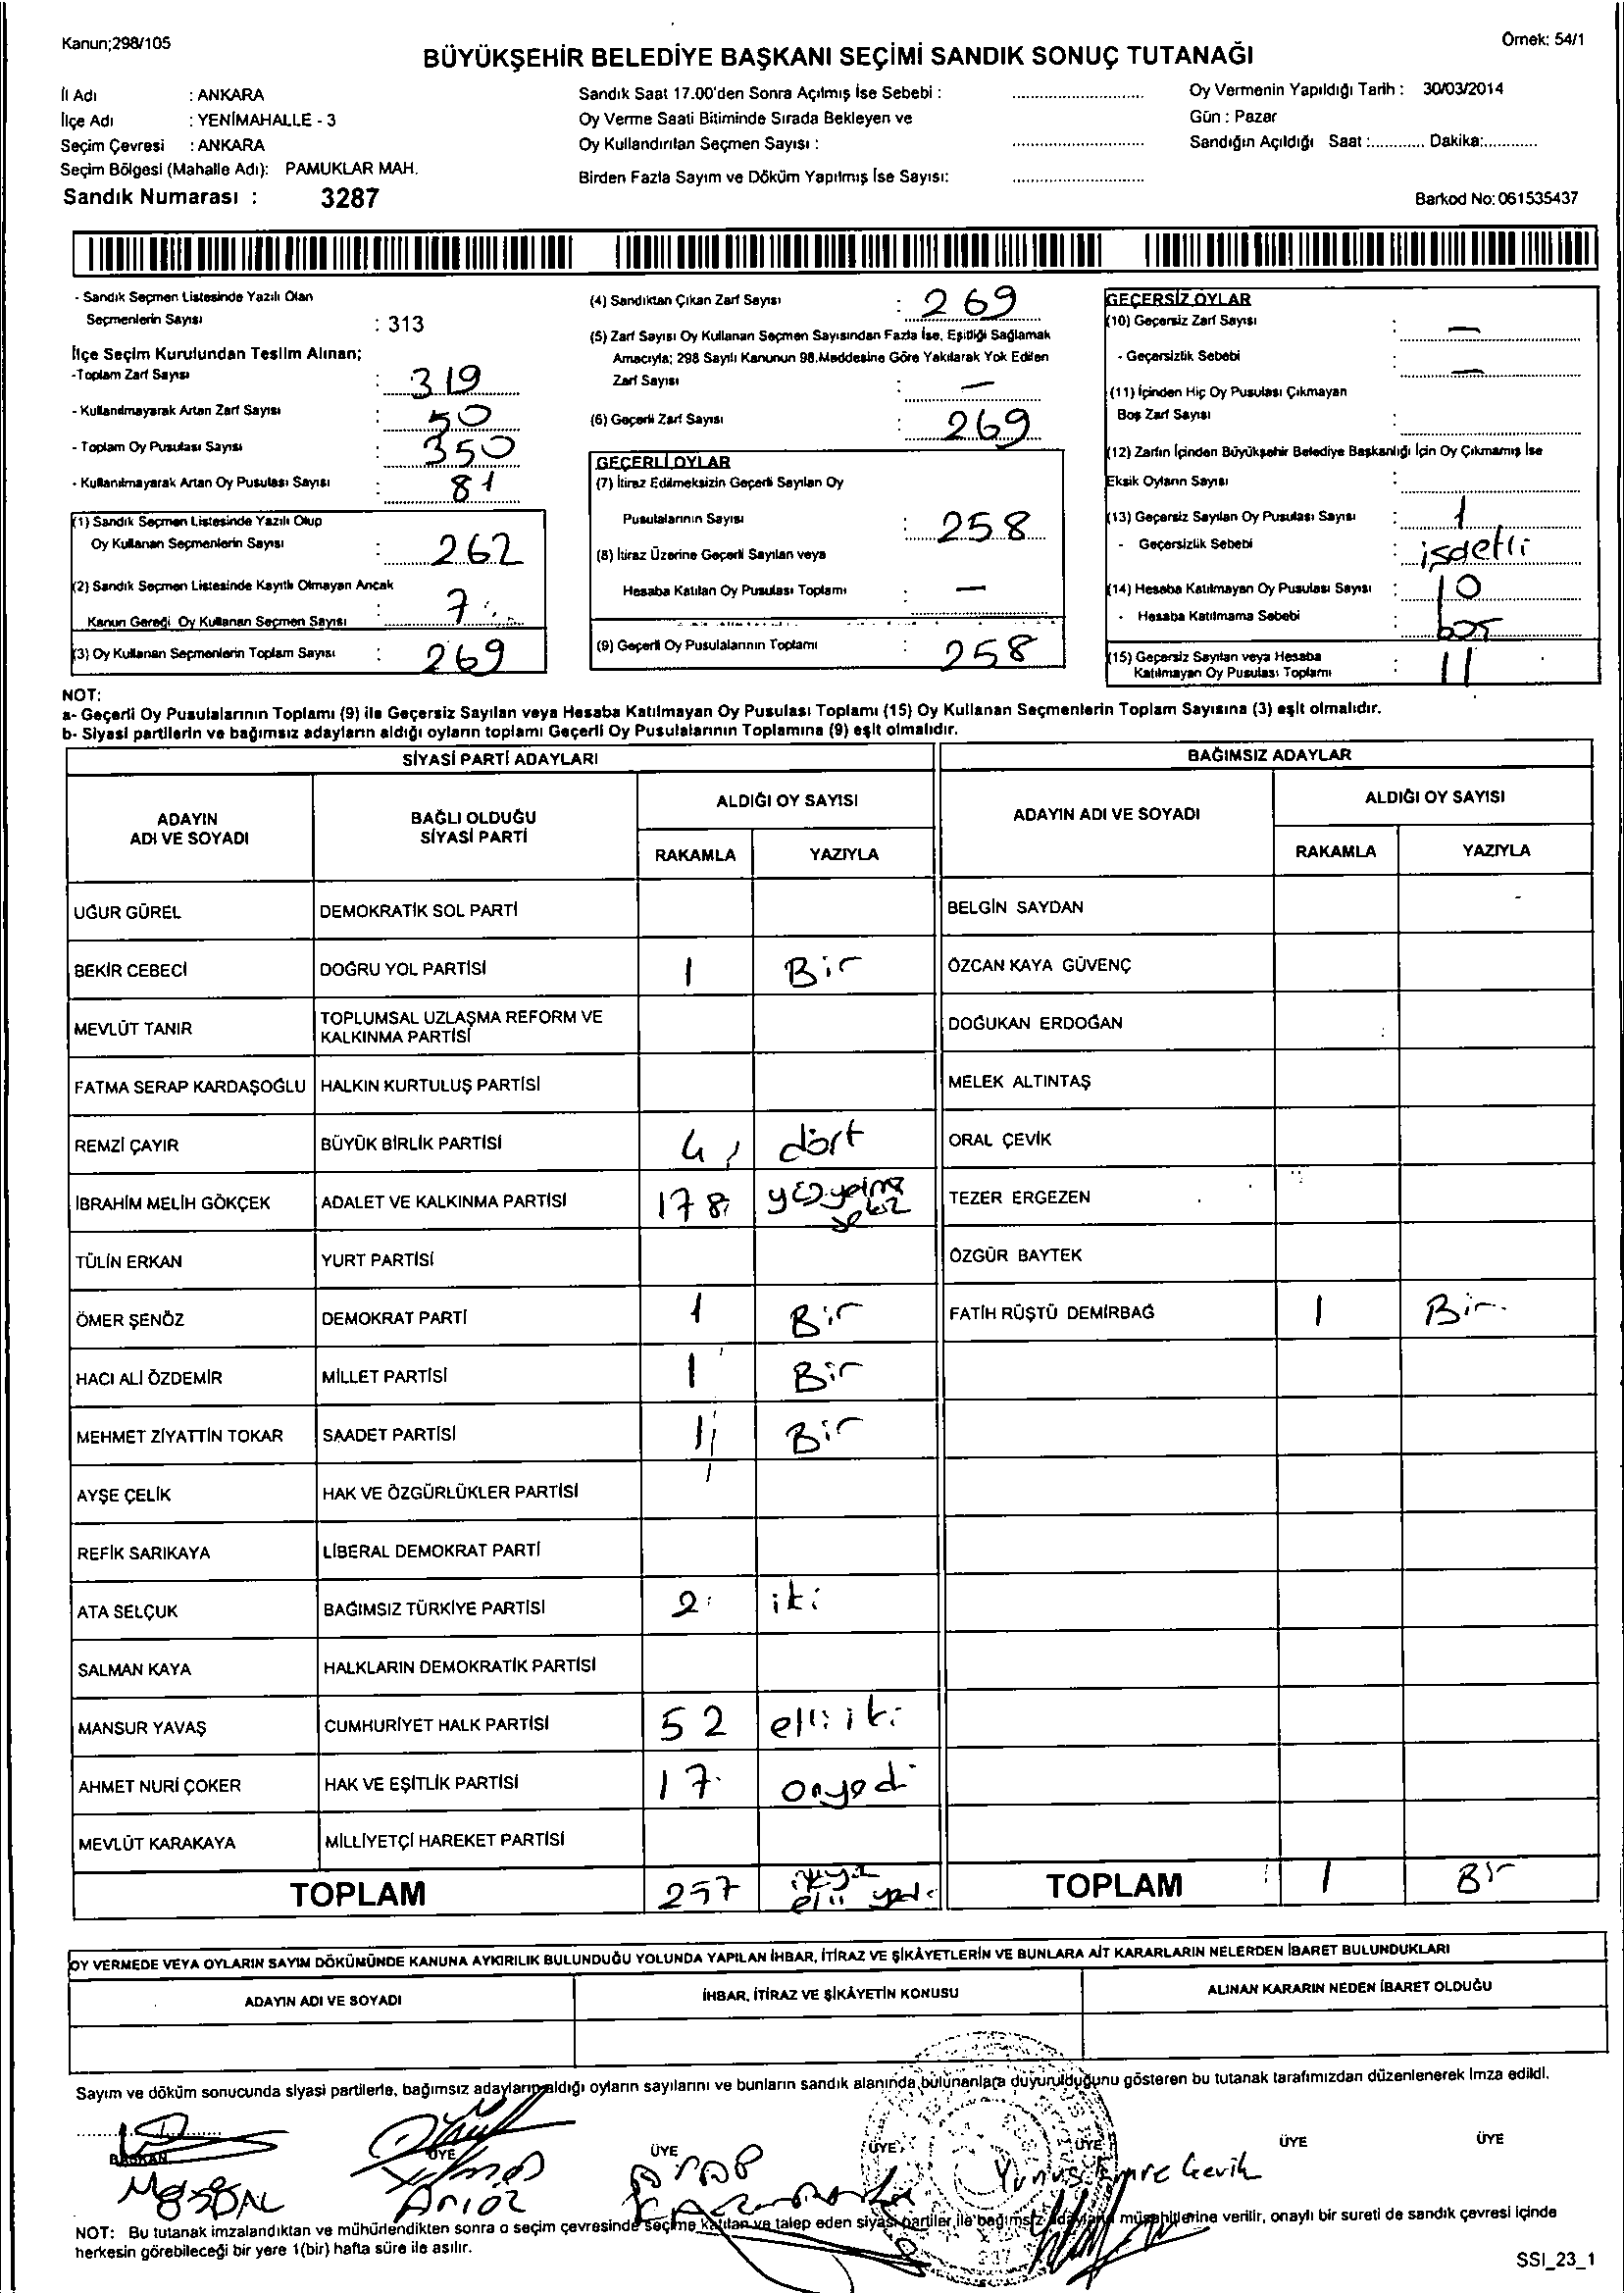 Kanun;298/105
Örnek: 54/1
BÜYÜKŞEHİR BELEDİYE BAŞKANI SEÇİMİ SANDIK SONUÇ TUTANAĞI
İl Adı : ANKARA
İlçe Adı : YENİMAHALLE - 3
Seçim Çevresi : ANKARA
Seçim Bölgesi (Mahalle Adı): PAMUKLAR MAH.
Sandık Numarası : 3287
Sandık Saat 17.00'den Sonra Açılmış İse Sebebi :
Oy Verme Saati Bitiminde Sırada Bekleyen ve
Oy Kullandırılan Seçmen Sayısı :
Birden Fazla Sayım ve Döküm Yapılmış İse Sayısı:
Oy Vermenin Yapıldığı Tarih : 30/03/2014
Gün : Pazar
Sandığın Açıldığı Saat :............ Dakika:............
Barkod No: 061535437
- Sandık Seçmen Listesinde Yazılı Olan
Seçmenlerin Sayısı : 313
İlçe Seçim Kurulundan Teslim Alınan;
-Toplam Zarf Sayısı : 319
- Kullanılmayarak Artan Zarf Sayısı : 50
- Toplam Oy Pusulası Sayısı : 350
- Kullanılmayarak Artan Oy Pusulası Sayısı : 81
(1) Sandık Seçmen Listesinde Yazılı Olup
Oy Kullanan Seçmenlerin Sayısı : 262
(2) Sandık Seçmen Listesinde Kayıtlı Olmayan Ancak
Kanun Gereği Oy Kullanan Seçmen Sayısı : 7
(3) Oy Kullanan Seçmenlerin Toplam Sayısı : 269
(4) Sandıktan Çıkan Zarf Sayısı : 269
(5) Zarf Sayısı Oy Kullanan Seçmen Sayısından Fazla İse, Eşitliği Sağlamak
Amacıyla; 298 Sayılı Kanunun 98.Maddesine Göre Yakılarak Yok Edilen
Zarf Sayısı : —
(6) Geçerli Zarf Sayısı : 269
GEÇERLİ OYLAR
(7) İtiraz Edilmeksizin Geçerli Sayılan Oy
Pusulalarının Sayısı : 258
(8) İtiraz Üzerine Geçerli Sayılan veya
Hesaba Katılan Oy Pusulası Toplamı : —
(9) Geçerli Oy Pusulalarının Toplamı : 258
GEÇERSİZ OYLAR
(10) Geçersiz Zarf Sayısı : —
- Geçersizlik Sebebi : —
(11) İçinden Hiç Oy Pusulası Çıkmayan
Boş Zarf Sayısı :
(12) Zarfın İçinden Büyükşehir Belediye Başkanlığı İçin Oy Çıkmamış İse
Eksik Oyların Sayısı :
(13) Geçersiz Sayılan Oy Pusulası Sayısı : 1
- Geçersizlik Sebebi : işdetli
(14) Hesaba Katılmayan Oy Pusulası Sayısı : 10
- Hesaba Katılmama Sebebi : boş
(15) Geçersiz Sayılan veya Hesaba
Katılmayan Oy Pusulası Toplamı : 11
NOT:
a- Geçerli Oy Pusulalarının Toplamı (9) ile Geçersiz Sayılan veya Hesaba Katılmayan Oy Pusulası Toplamı (15) Oy Kullanan Seçmenlerin Toplam Sayısına (3) eşit olmalıdır.
b- Siyasi partilerin ve bağımsız adayların aldığı oyların toplamı Geçerli Oy Pusulalarının Toplamına (9) eşit olmalıdır.
SİYASİ PARTİ ADAYLARI
BAĞIMSIZ ADAYLAR
ADAYIN ADI VE SOYADI
BAĞLI OLDUĞU SİYASİ PARTİ
ALDIĞI OY SAYISI
RAKAMLA YAZIYLA
ADAYIN ADI VE SOYADI
ALDIĞI OY SAYISI
RAKAMLA YAZIYLA
UĞUR GÜREL DEMOKRATİK SOL PARTİ BELGİN SAYDAN -
BEKİR CEBECİ DOĞRU YOL PARTİSİ 1 Bir ÖZCAN KAYA GÜVENÇ
MEVLÜT TANIR TOPLUMSAL UZLAŞMA REFORM VE KALKINMA PARTİSİ DOĞUKAN ERDOĞAN
FATMA SERAP KARDAŞOĞLU HALKIN KURTULUŞ PARTİSİ MELEK ALTINTAŞ
REMZİ ÇAYIR BÜYÜK BİRLİK PARTİSİ 4 dört ORAL ÇEVİK
İBRAHİM MELİH GÖKÇEK ADALET VE KALKINMA PARTİSİ 178 TEZER ERGEZEN
TÜLİN ERKAN YURT PARTİSİ ÖZGÜR BAYTEK
ÖMER ŞENÖZ DEMOKRAT PARTİ 1 Bir FATİH RÜŞTÜ DEMİRBAĞ 1 Bir
HACI ALİ ÖZDEMİR MİLLET PARTİSİ 1 Bir
MEHMET ZİYATTİN TOKAR SAADET PARTİSİ 1 Bir
AYŞE ÇELİK HAK VE ÖZGÜRLÜKLER PARTİSİ
REFİK SARIKAYA LİBERAL DEMOKRAT PARTİ
ATA SELÇUK BAĞIMSIZ TÜRKİYE PARTİSİ 2 iki
SALMAN KAYA HALKLARIN DEMOKRATİK PARTİSİ
MANSUR YAVAŞ CUMHURİYET HALK PARTİSİ 52 elli iki
AHMET NURİ ÇOKER HAK VE EŞİTLİK PARTİSİ 17 onyedi
MEVLÜT KARAKAYA MİLLİYETÇİ HAREKET PARTİSİ
TOPLAM 257 ikiyüz elli yedi TOPLAM 1 Bir
OY VERMEDE VEYA OYLARIN SAYIM DÖKÜMÜNDE KANUNA AYKIRILIK BULUNDUĞU YOLUNDA YAPILAN İHBAR, İTİRAZ VE ŞİKÂYETLERİN VE BUNLARA AİT KARARLARIN NELERDEN İBARET BULUNDUKLARI
ADAYIN ADI VE SOYADI
İHBAR, İTİRAZ VE ŞİKÂYETİN KONUSU
ALINAN KARARIN NEDEN İBARET OLDUĞU
Sayım ve döküm sonucunda siyasi partilerle, bağımsız adayların aldığı oyların sayılarını ve bunların sandık alanında bulunanlara duyurulduğunu gösteren bu tutanak tarafımızdan düzenlenerek imza edildi.
BAŞKAN ÜYE ÜYE ÜYE ÜYE ÜYE ÜYE
Yunus Emre Çevik
NOT: Bu tutanak imzalandıktan ve mühürlendikten sonra o seçim çevresinde seçime katılan ve talep eden siyasi partiler ile bağımsız adayların müşahitlerine verilir, onaylı bir sureti de sandık çevresi içinde
herkesin görebileceği bir yere 1(bir) hafta süre ile asılır.
SSI_23_1